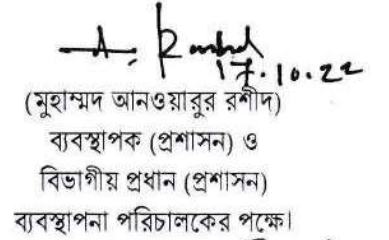 A. Rashid
17.10.22
(মুহাম্মদ আনওয়ারুর রশীদ)
ব্যবস্থাপক (প্রশাসন) ও
বিভাগীয় প্রধান (প্রশাসন)
ব্যবস্থাপনা পরিচালকের পক্ষে।